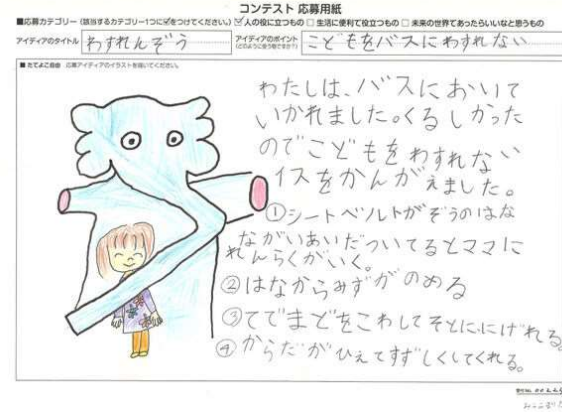 コンテスト 応募用紙
■応募カテゴリー (該当するカテゴリー1つに☑をつけてください。) ☑ 人の役に立つもの □ 生活に便利で役立つもの □ 未来の世界であったらいいなと思うもの
アイディアのタイトル わすれんぞう アイディアのポイント (どのように使う物ですか?) こどもをバスにわすれない
■ たてよこ自由 応募アイディアのイラストを描いてください。
わたしは、バスにおいて
いかれました。くるしかった
のでこどもをわすれない
イスをかんがえました。
①シートベルトがぞうのはな
ながいあいだついてるとママに
れんらくがいく。
②はなからみずがのめる
③てでまどをこわしてそとににげれる。
④からだがひえてすずしくしてくれる。